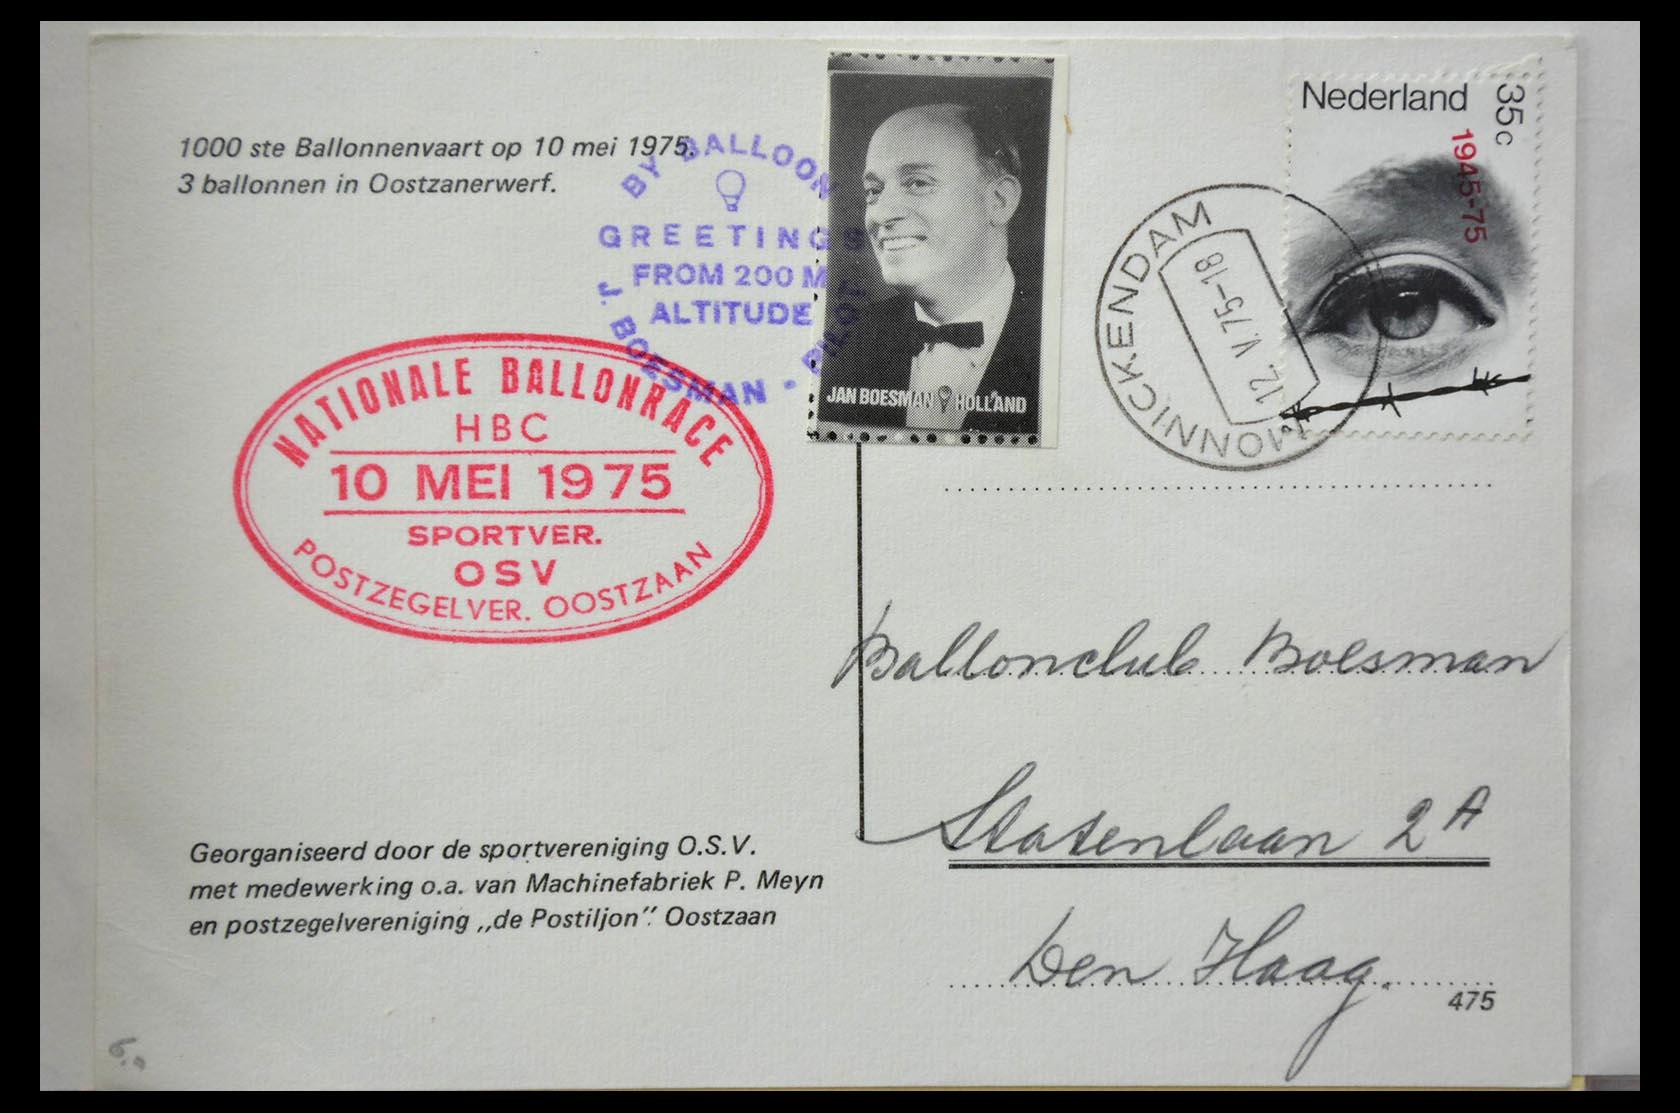 1000 ste Ballonnenvaart op 10 mei 1975.
3 ballonnen in Oostzanerwerf.
BY BALLOON
GREETINGS
FROM 200 M
ALTITUDE
J. BOESMAN - PILOT
JAN BOESMAN HOLLAND
Nederland 35c
1945-75
MONNICKENDAM
12. V. 75-18
NATIONALE BALLONRACE
HBC
10 MEI 1975
SPORTVER.
OSV
POSTZEGELVER. OOSTZAAN
Ballonclub Boesman
Statenlaan 2A
Den Haag.
475
Georganiseerd door de sportvereniging O.S.V.
met medewerking o.a. van Machinefabriek P. Meyn
en postzegelvereniging „de Postiljon”. Oostzaan